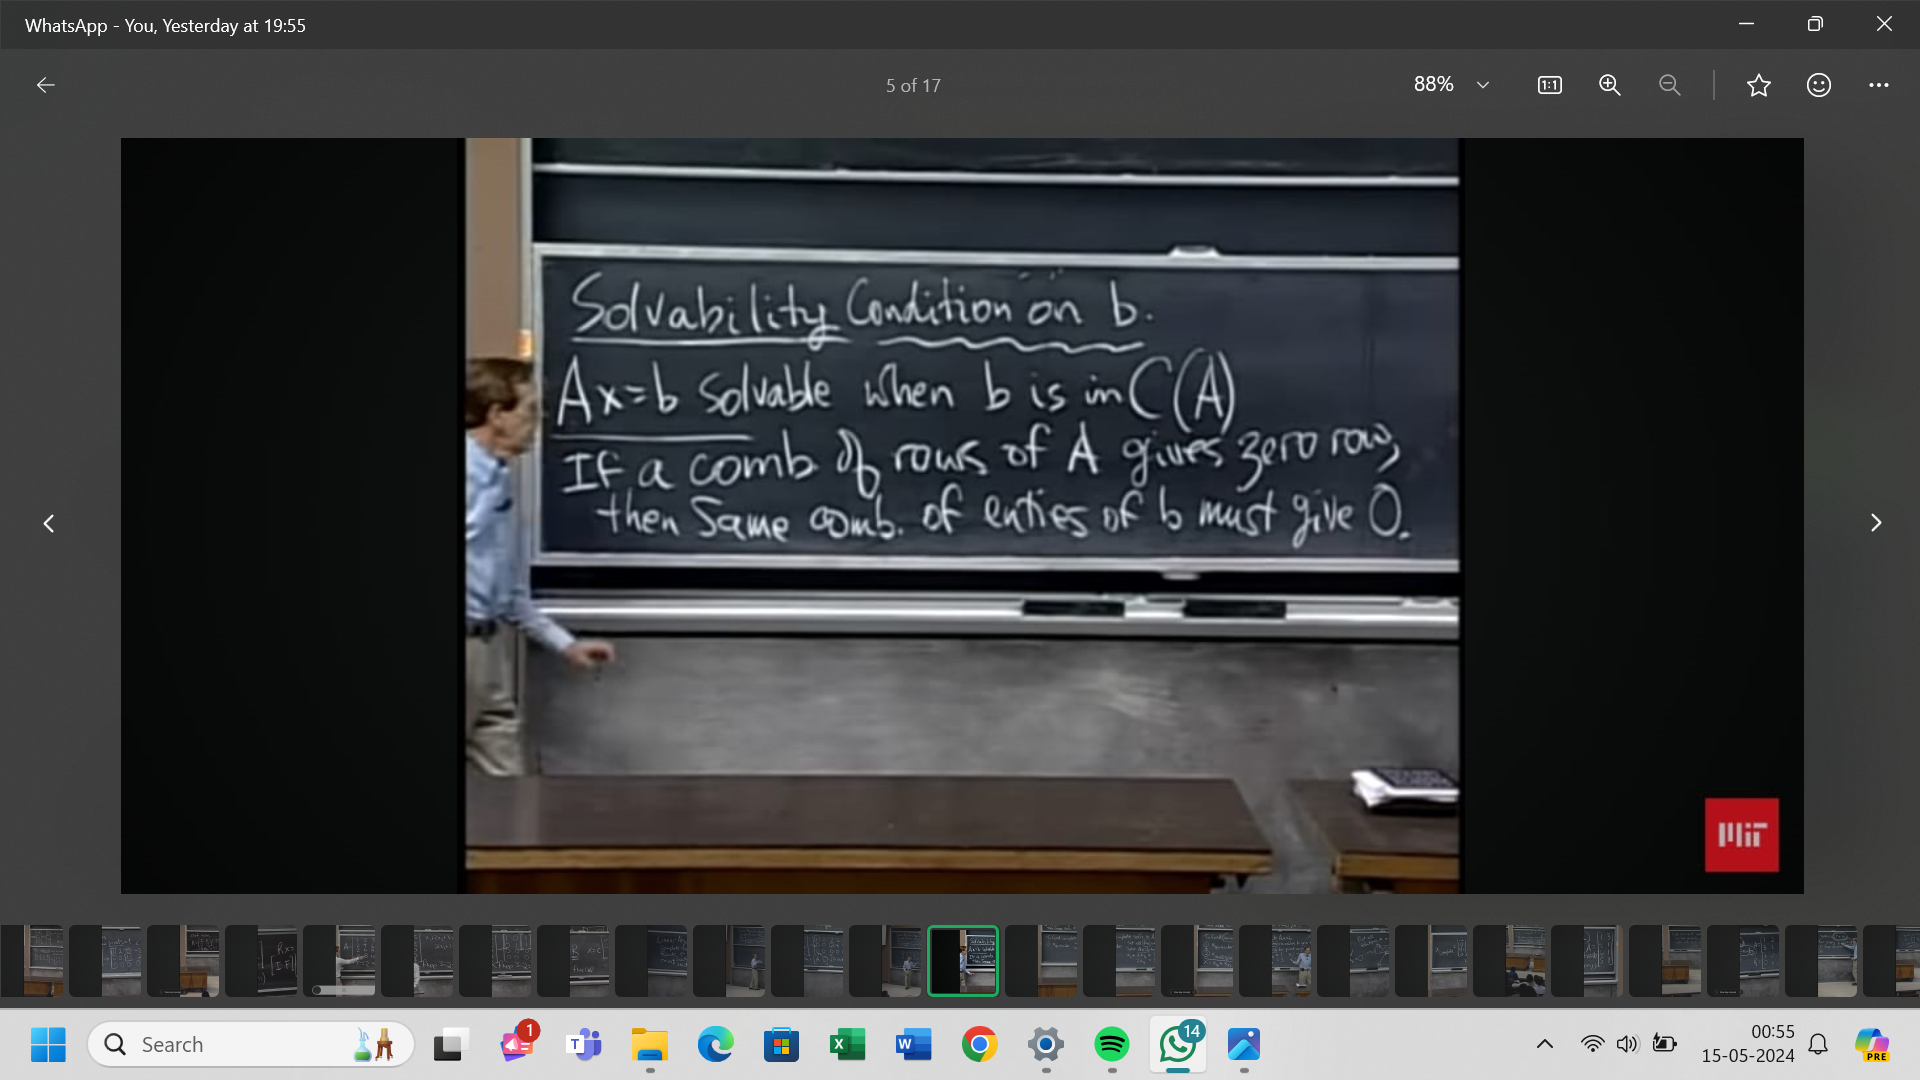 WhatsApp - You, Yesterday at 19:55
5 of 17
88%
1:1
Solvability Condition on b.
Ax=b solvable when b is in C(A)
If a comb of rows of A gives zero row,
then same comb. of enties of b must give 0.
MIT
Search
1
14
00:55
15-05-2024
PRE